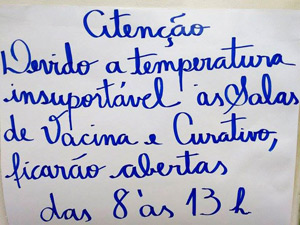 Atenção
Devido a temperatura
insuportável as Salas
de Vacina e Curativo,
ficarão abertas
das 8 às 13 h